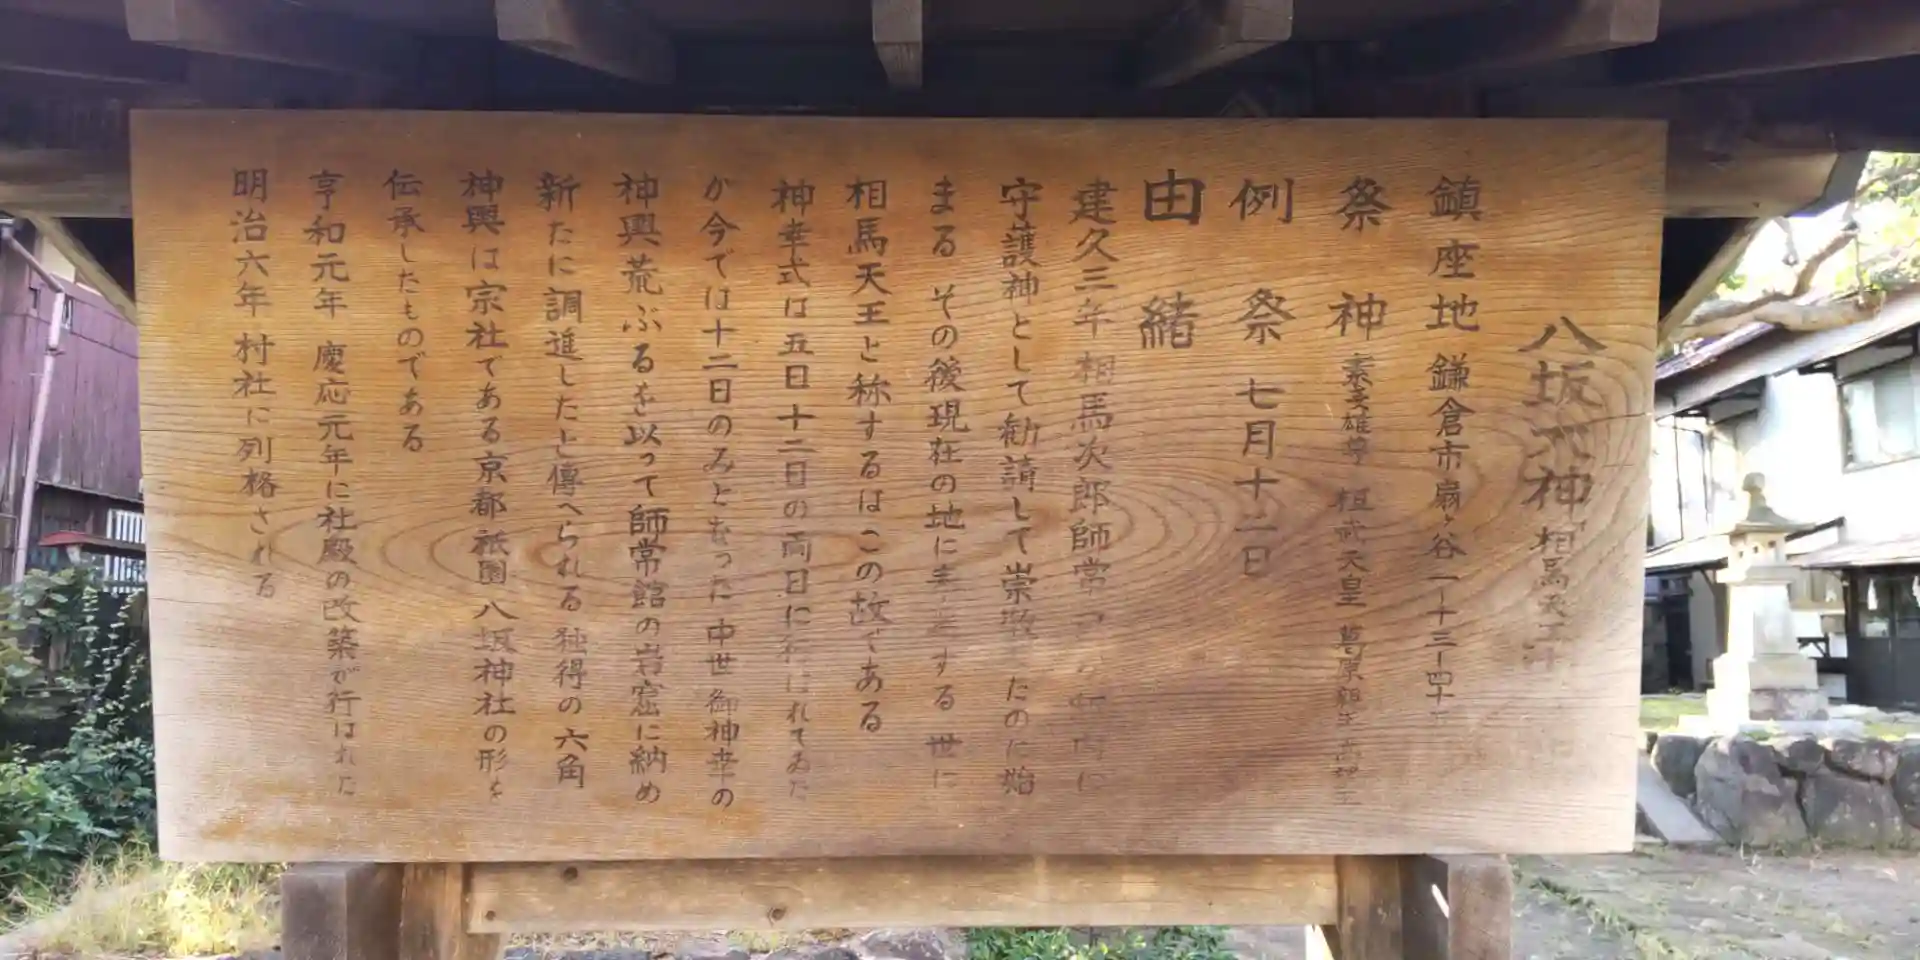 八坂大神 相馬天王
鎮座地 鎌倉市扇ヶ谷一ー十三ー四十
祭神 素戔雄尊 桓武天皇 葛原親王 高望王
例祭 七月十二日
由緒
建久三年 相馬次郎師常 内に
守護神として勧請して崇敬 たのに始
まる その後現在の地に する 世に
相馬天王と称するはこの故である
神幸式は五日十二日の両日に行はれてゐた
が今では十二日のみとなった 中世御神幸の
神輿荒ぶるを以って師常館の岩窟に納め
新たに調進したと傳へられる 独得の六角
神輿は宗社である京都祇園八坂神社の形を
伝承したものである
享和元年 慶応元年に社殿の改築が行はれた
明治六年 村社に列格される